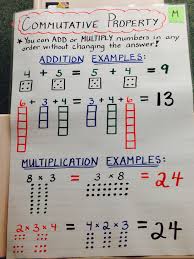 COMMUTATIVE PROPERTY
M
* You can ADD or MULTIPLY numbers in any
order without changing the answer!
ADDITION EXAMPLES:
4 + 5 = 5 + 4 = 9
6 + 3 + 4 = 3 + 4 + 6 = 13
MULTIPLICATION EXAMPLES:
8 x 3 = 3 x 8 = 24
2 x 3 x 4 = 4 x 2 x 3 = 24